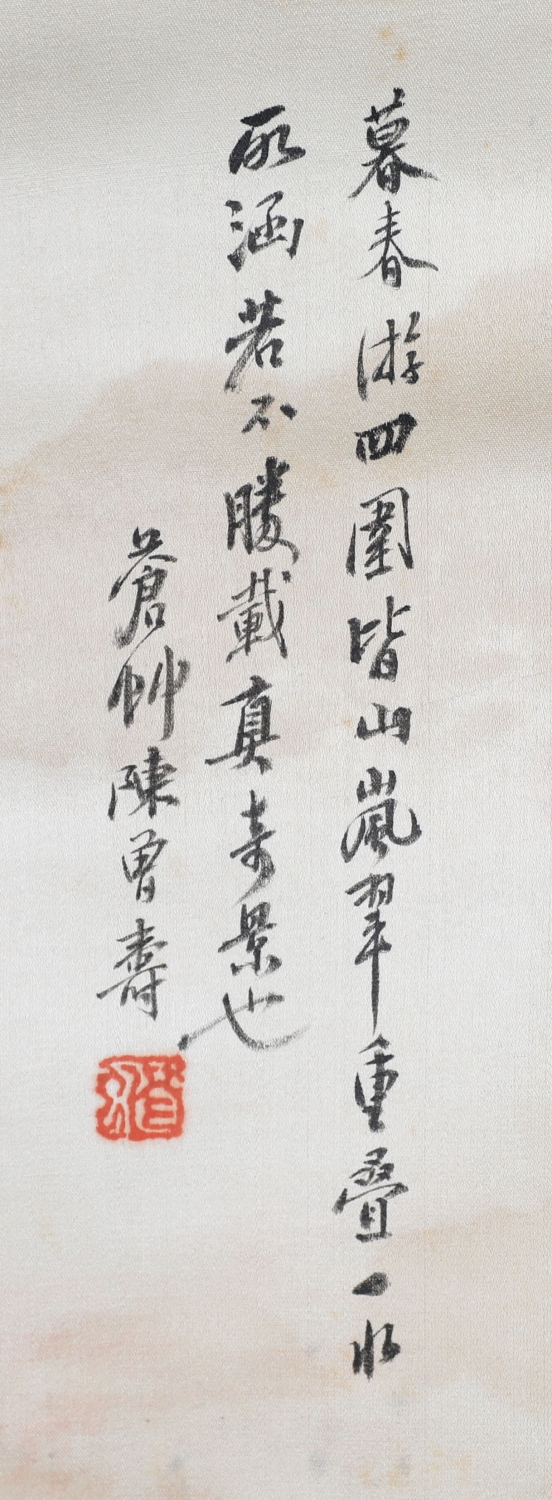 暮春游四圍皆山嵐翠重疊一水
所涵若不勝載真奇景也
蒼虬陳曾壽